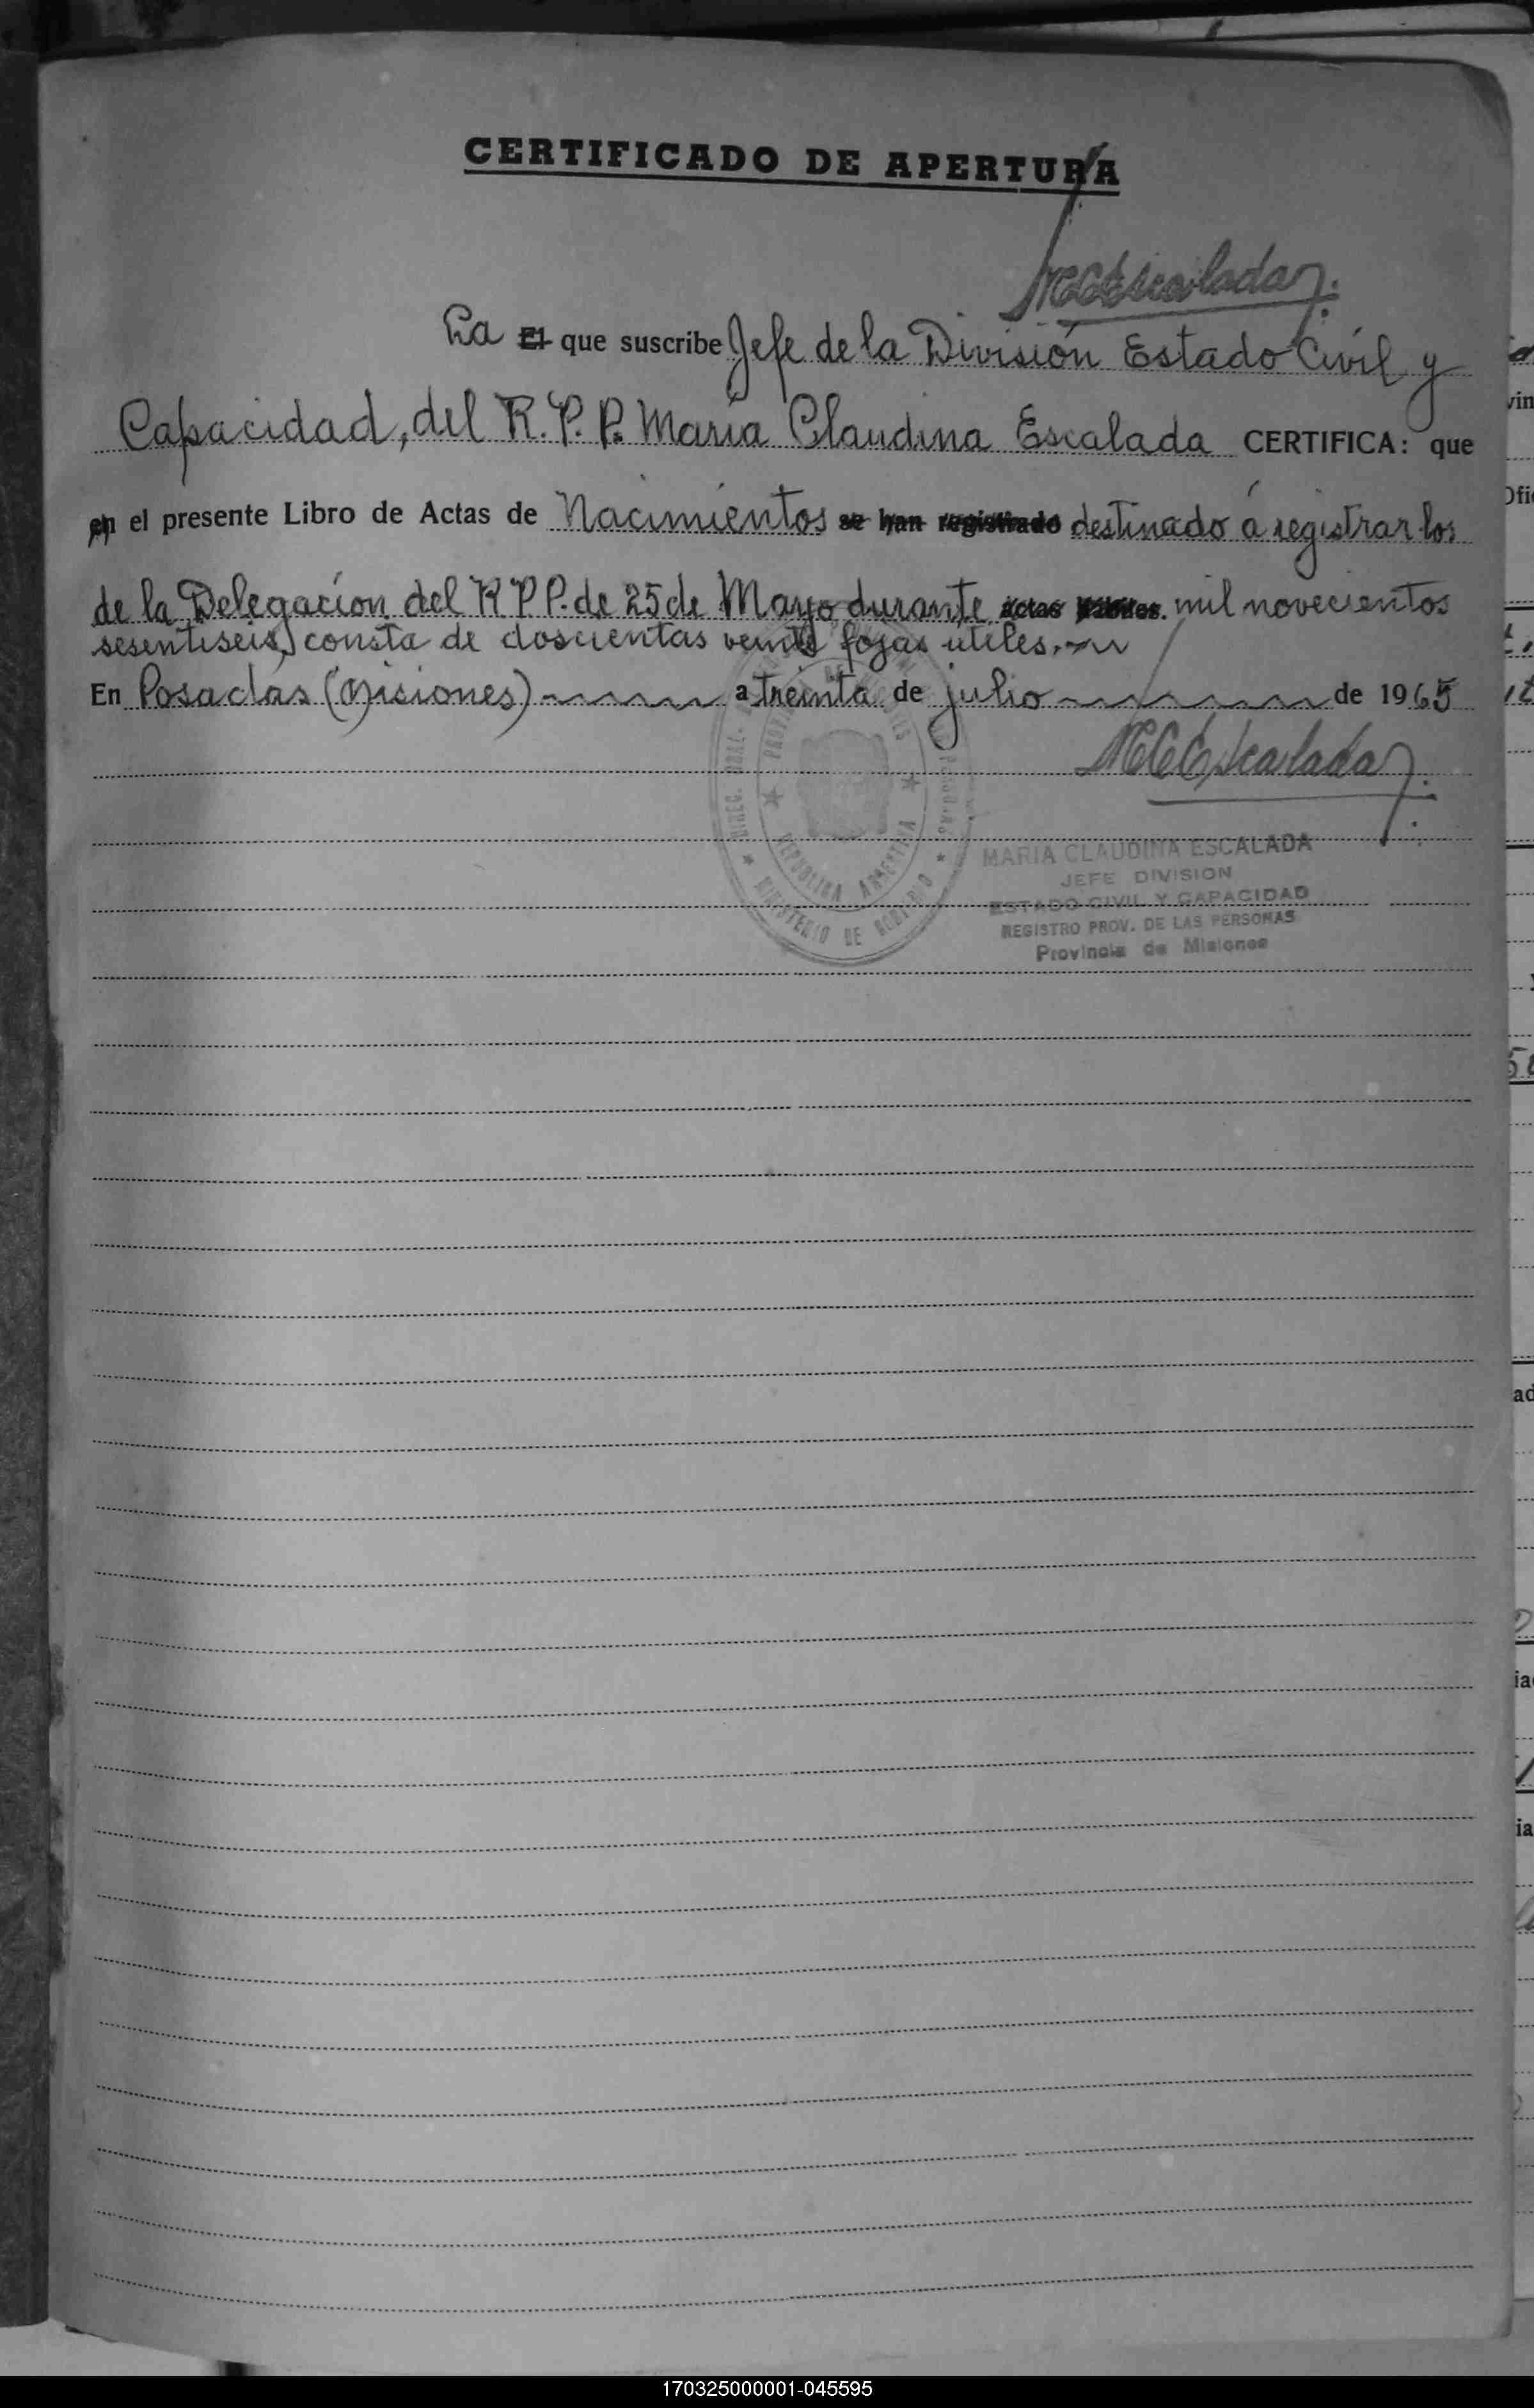 CERTIFICADO DE APERTURA
MCEscalada
La El que suscribe Jefe de la División Estado Civíl y
Capacidad, del R.P.P. María Claudina Escalada CERTIFICA: que
en el presente Libro de Actas de Nacimientos se han registrado destinado á registrar los
de la Delegación del R P P. de 25 de Mayo, durante actas mil novecientos
sesentiseis, consta de doscientas veinte fojas utiles.
En Posadas (Misiones) a treinta de julio de 1965
MCEscalada
MARIA CLAUDINA ESCALADA
JEFE DIVISION
ESTADO CIVIL Y CAPACIDAD
REGISTRO PROV. DE LAS PERSONAS
Provincia de Misiones
REPUBLICA ARGENTINA
MINISTERIO DE GOBIERNO
170325000001-045595